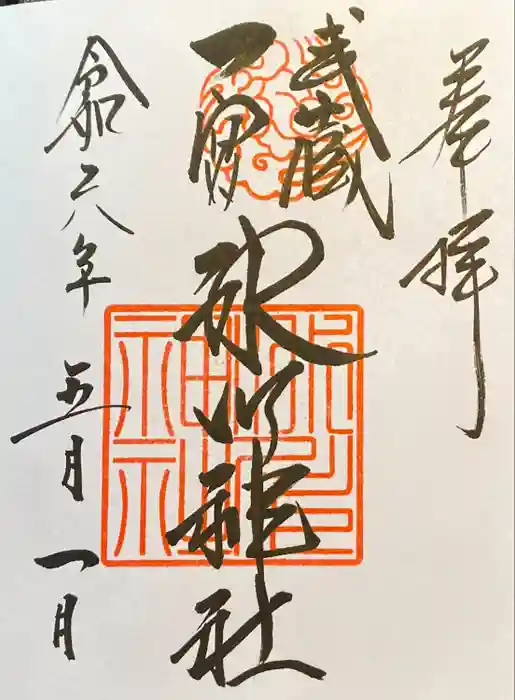 奉拝
武蔵
一宮
氷川神社
令和六年
五月
一日